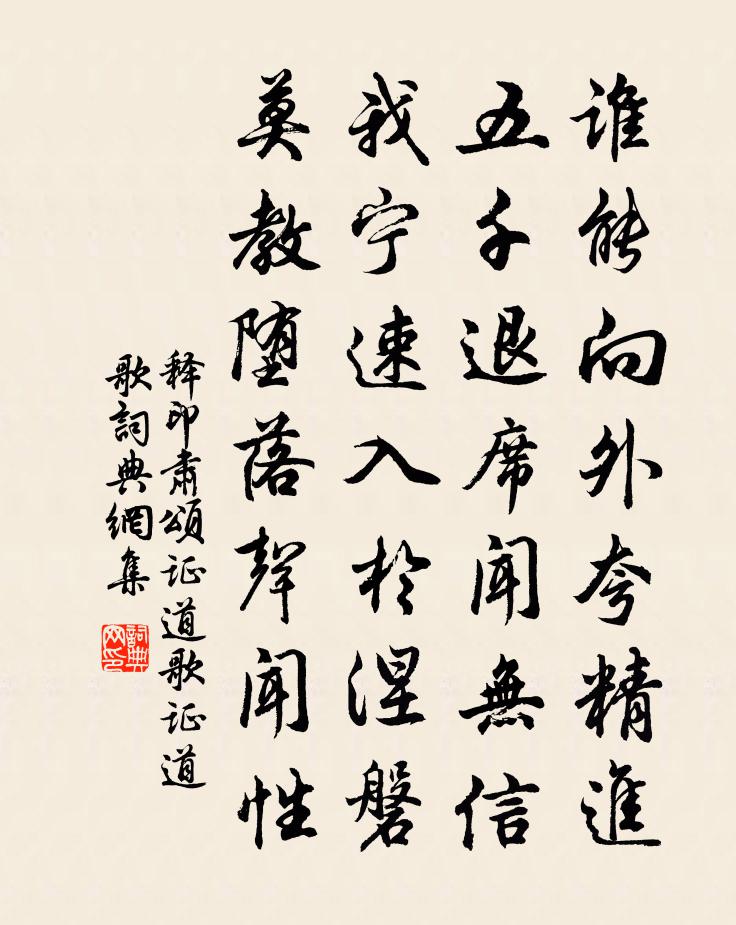 誰能向外夸精進
五千退席聞無信
我宁速入於涅磐
莫教堕落聲聞性
释印肅頌证道歌证道
歌詞典網集
詞典
网印